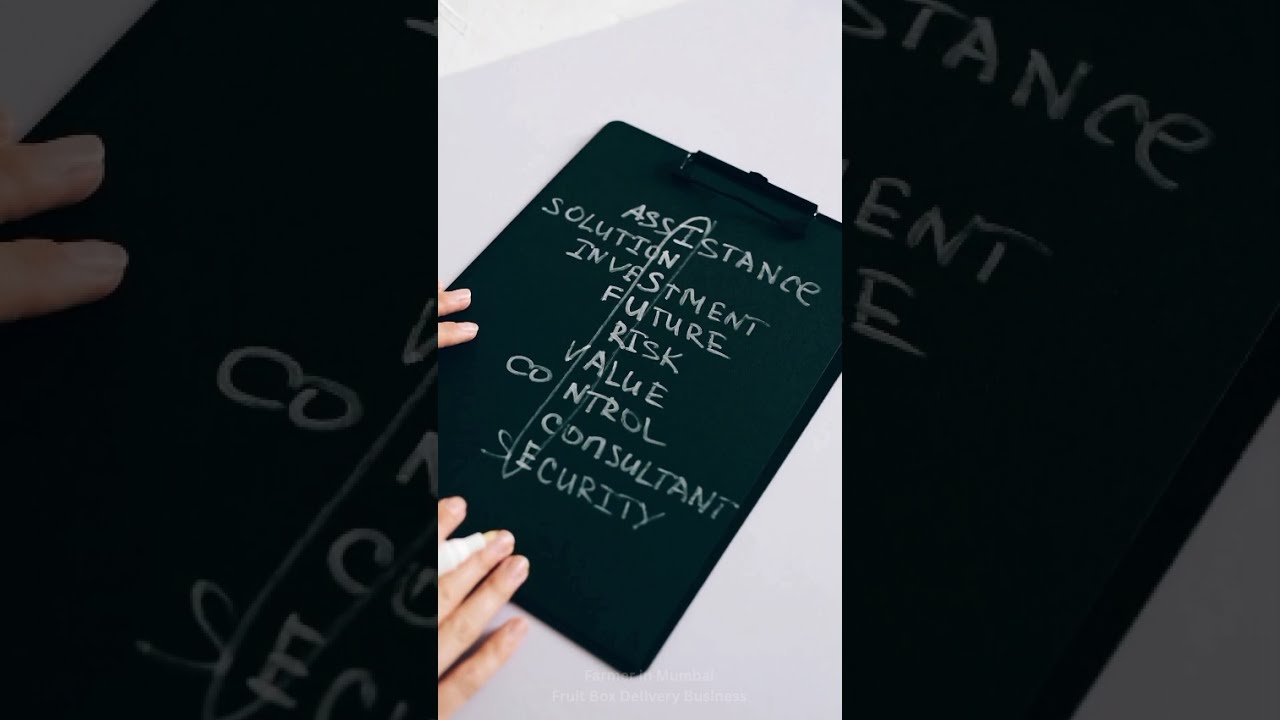 ASSISTANCE
SOLUTION
INVESTMENT
FUTURE
RISK
VALUE
CONTROL
CONSULTANT
SECURITY
Farmer in Mumbai
Fruit Box Delivery Business